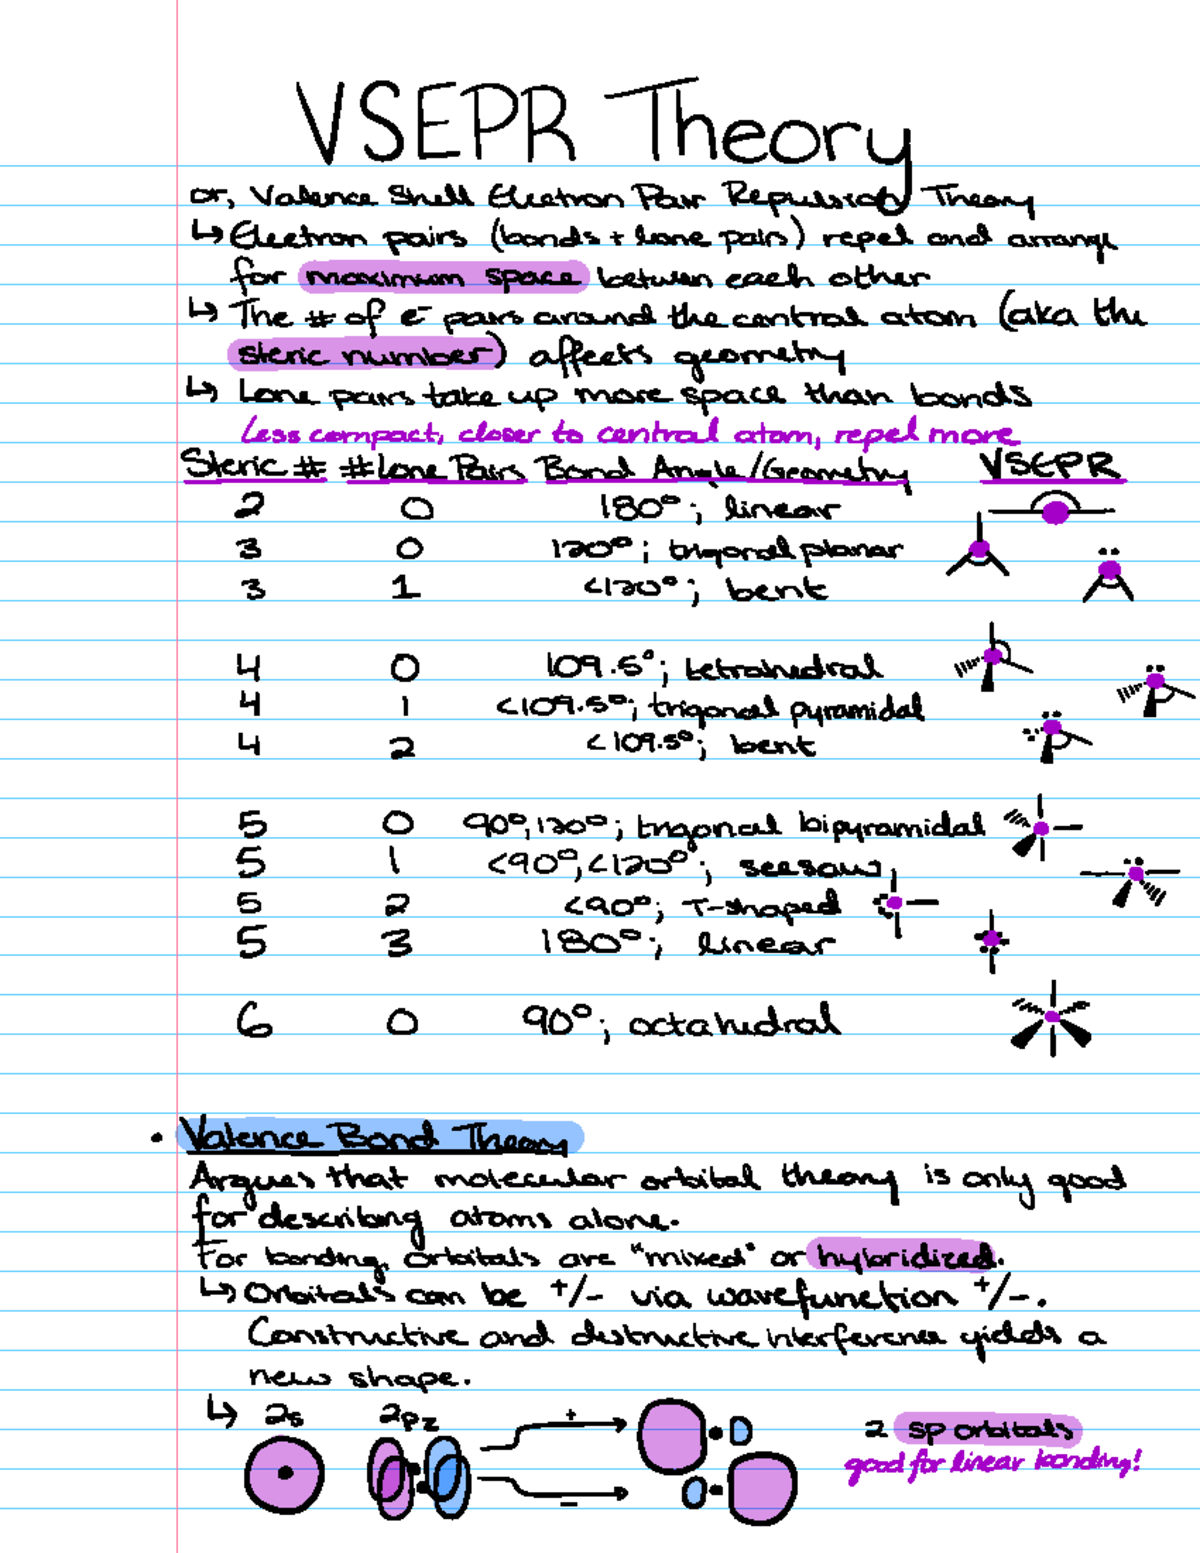 VSEPR Theory
or, Valence Shell Electron Pair Repulsion Theory
↳ Electron pairs (bonds + lone pairs) repel and arrange
for maximum space between each other
↳ The # of e⁻ pairs around the central atom (aka the
steric number) affects geometry
↳ Lone pairs take up more space than bonds
Less compact, closer to central atom, repel more
Steric # # Lone Pairs Bond Angle/Geometry VSEPR
2 0 180°; linear
3 0 120°; trigonal planar
3 1 <120°; bent
4 0 109.5°; tetrahedral
4 1 <109.5°; trigonal pyramidal
4 2 <109.5°; bent
5 0 90°, 120°; trigonal bipyramidal
5 1 <90°, <120°; seesaw
5 2 <90°; T-shaped
5 3 180°; linear
6 0 90°; octahedral
• Valence Bond Theory
Argues that molecular orbital theory is only good
for describing atoms alone.
For bonding, orbitals are "mixed" or hybridized.
↳ Orbitals can be +/- via wavefunction +/-.
Constructive and destructive interference yields a
new shape.
↳ 2s 2pz + 2 sp orbitals
good for linear bonding!
−